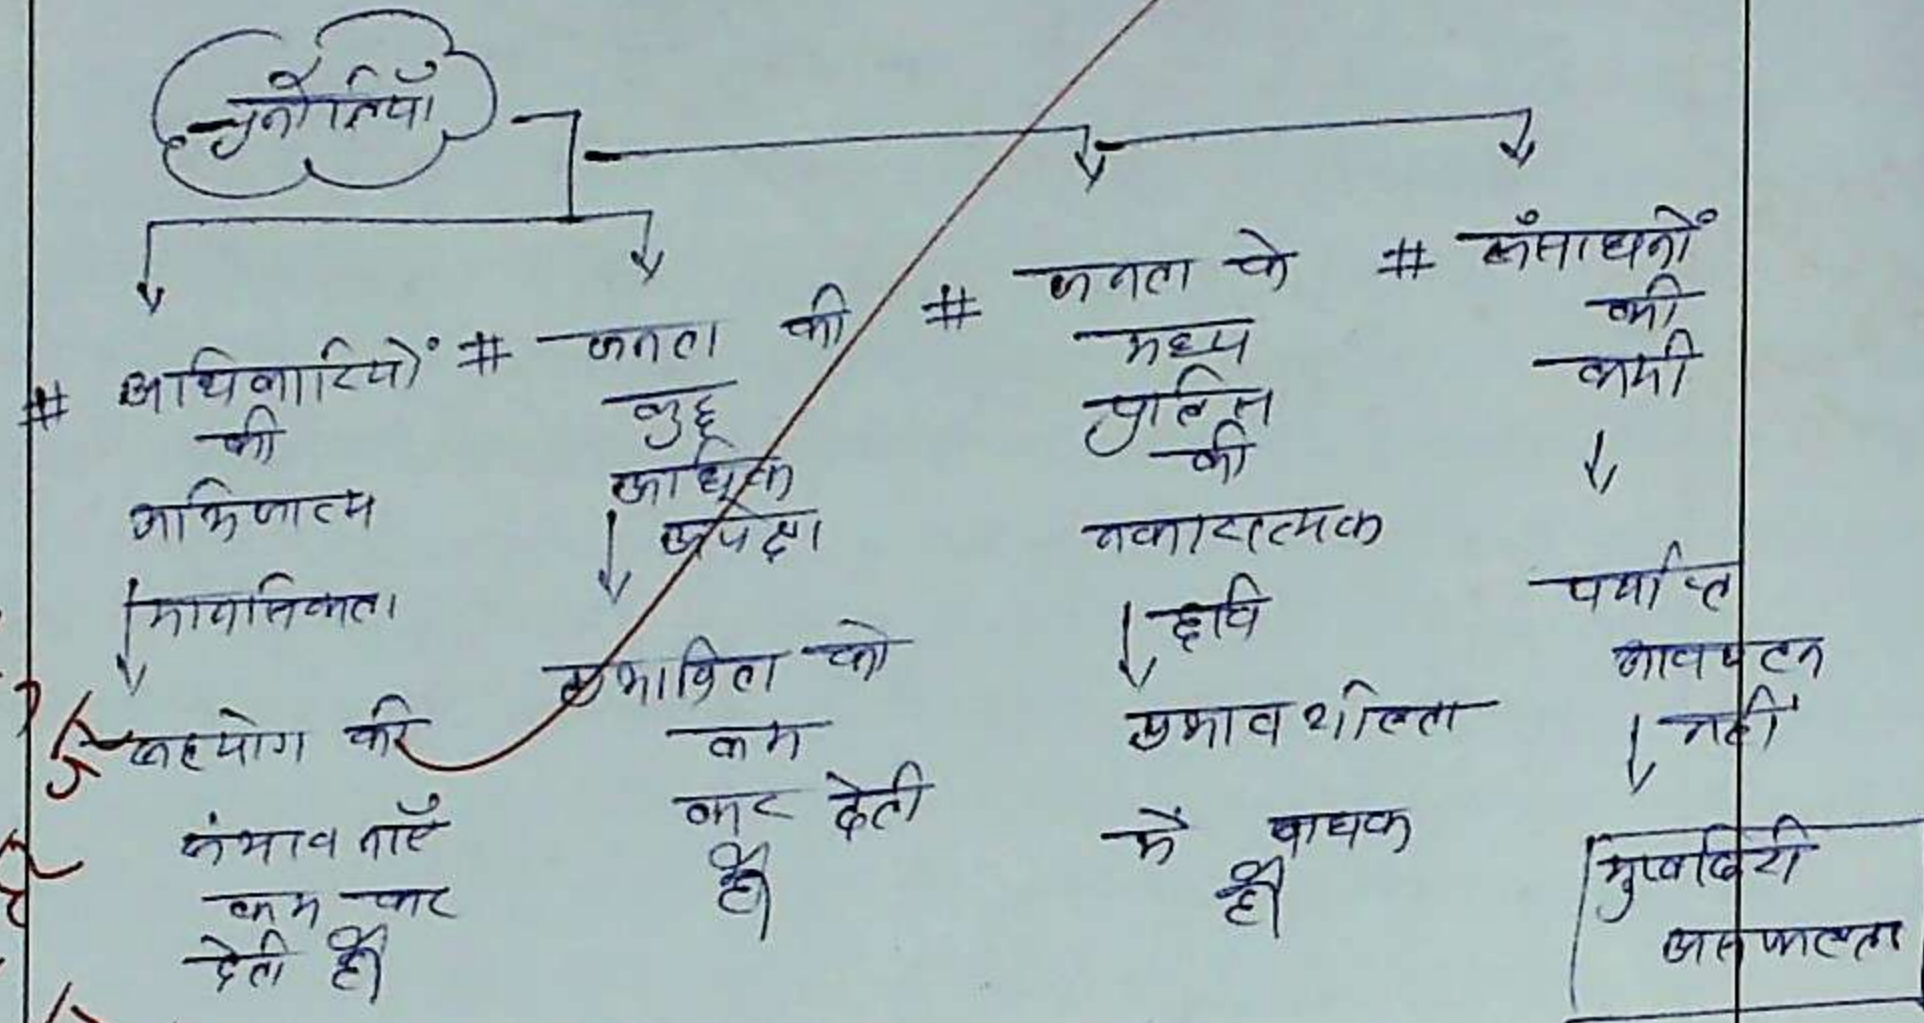 चुनौतियाँ
# अधिकारियों
की
अभिजात्य
मानसिकता
सहयोग की
संभावनाएँ
कम कर
देती है।
# जनता की
कुछ
अधिक
अपेक्षा
प्रभाविता को
कम
कर देती
है।
# जनता के
मध्य
पुलिस
की
नकारात्मक
छवि
प्रभावशीलता
में बाधक
है।
# संसाधनों
की
कमी
पर्याप्त
आवण्टन
नहीं
मुखबिरी
असफलता